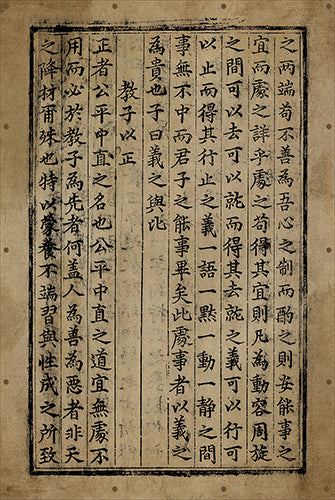 之兩端苟不善為吾心之制而酌之則安能事之
宜而處之詳乎處之苟得其宜則凡為動容周旋
之間可以去可以就而得其去就之義可以行可
以止而得其行止之義一語一黙一動一靜之間
事無不中而君子之能事畢矣此處事者以義之
為貴也子曰義之與比
教子以正
正者公平中直之名也公平中直之道宜無處不
用而必於教子為先者何盖人為善為惡者非天
之降材爾殊也特以蒙養不端習與性成之所致